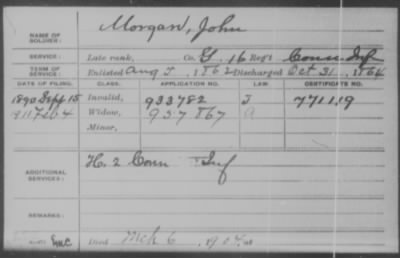 Morgan, John
NAME OF SOLDIER:
SERVICE: Late rank, Co. G, 16 Reg't Conn Inf
TERM OF SERVICE: Enlisted Aug 7, 1862 Discharged Oct 31, 1864
DATE OF FILING. CLASS. APPLICATION NO. LAW. CERTIFICATE NO.
1890 Sept 15 Invalid, 933782 J 771119
Widow, 957867 A
Minor,
ADDITIONAL SERVICES: H. 2 Conn Inf
REMARKS:
Died Mch 6, 1904